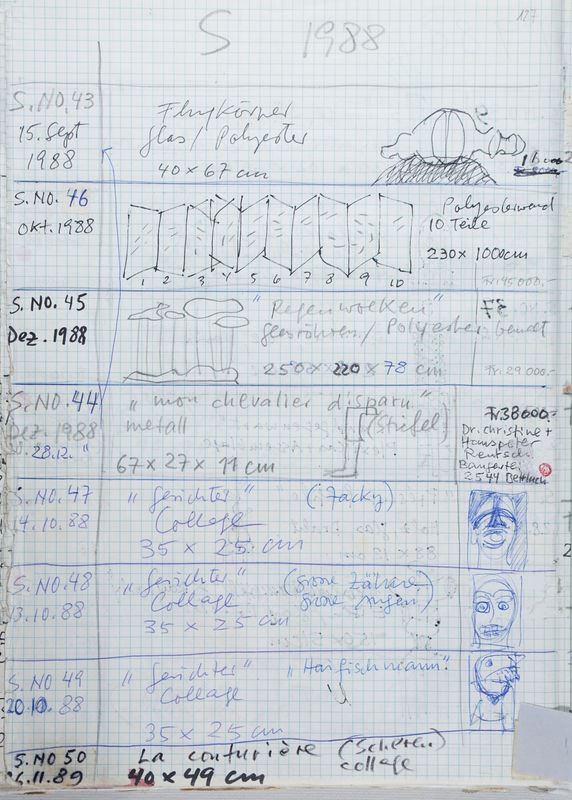 127
S 1988
S.NO.43
15. Sept
1988
Flugkörper
glas / Polyester
40 x 67 cm
S.NO. 46
Okt. 1988
1 2 3 4 5 6 7 8 9 10
Polyesterwand
10 Teile
230 x 1000cm
Fr. 145000.-
S. NO. 45
Dez. 1988
"Regenwolken" 37
glasröhren / Polyester bemalt
250 x 220 x 78 cm
Fr. 29000.-
S.NO.44
Dez. 1988
28.12.
"mon chevalier disparu"
metall (Stiefel)
67 x 27 x 11 cm
Fr 38000.-
Dr. Christine +
Hanspeter
Rentsch
2544 Bettlach
S.NO.47
14.10.88
"gesichter" (: Jacky)
Collage
35 x 25 cm
S.NO.48
13.10.88
"gesichter" (grosse Zähne
Collage grosse Augen)
35 x 25 cm
S.NO 49
20.10. 88
"gesichter" "Haifischmann"
Collage
35 x 25 cm
S.NO 50
.11.89
La couturière (Scheren)
40 x 49 cm collage